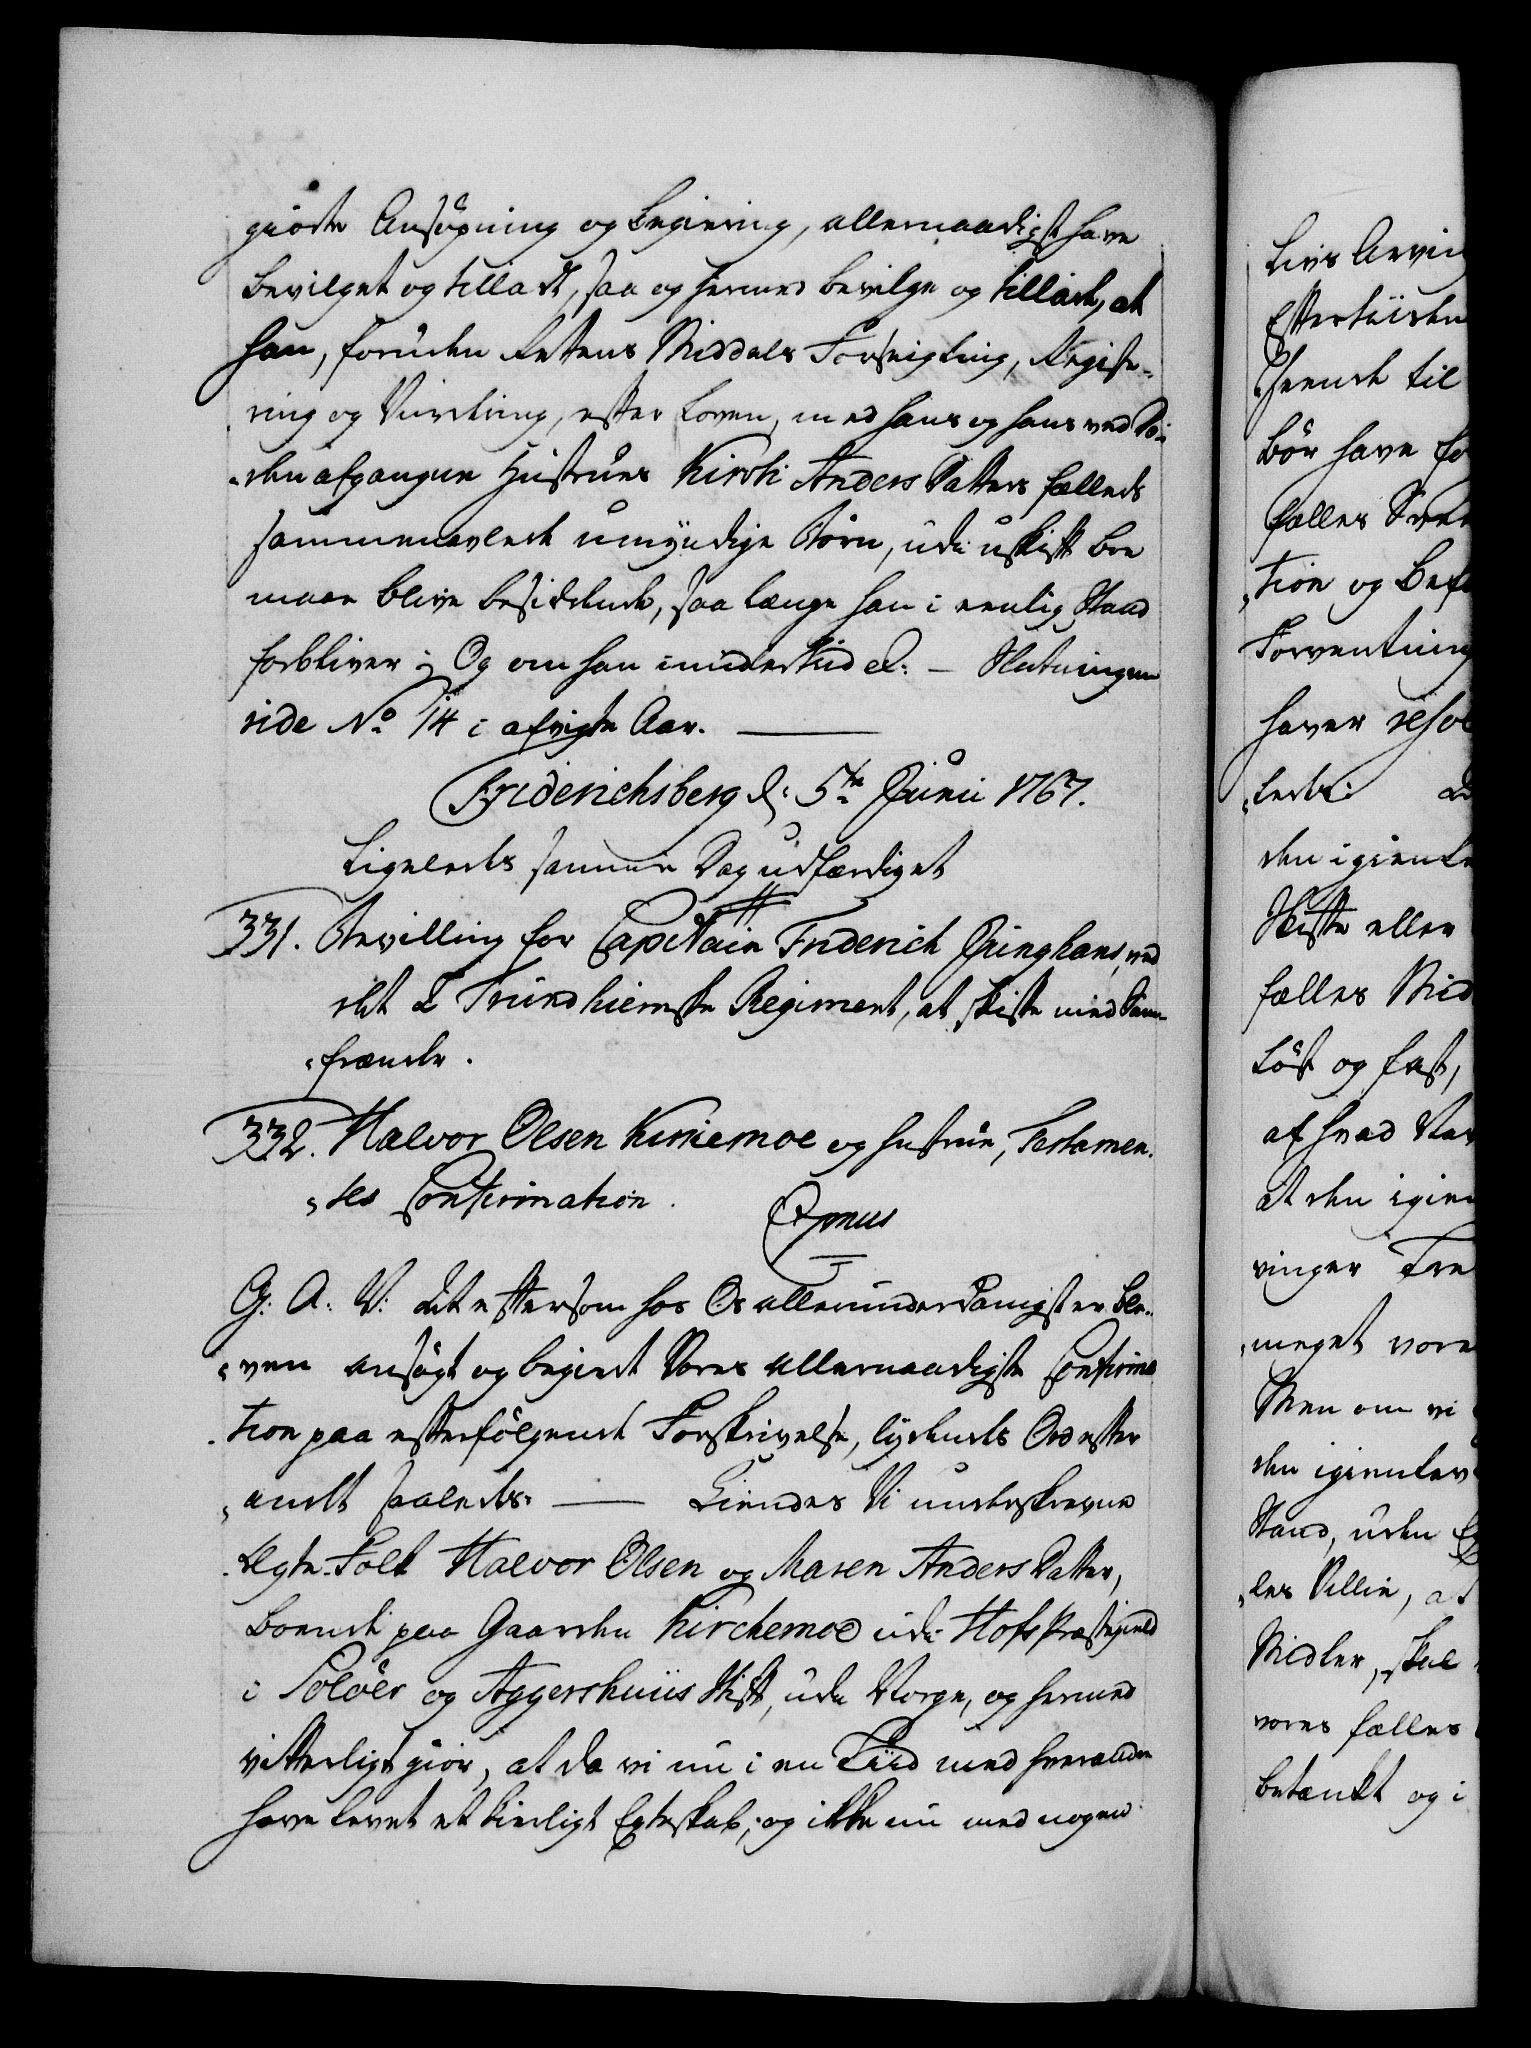 giorte Ansøgning og begiering, allernaadigst have
bevilget og tilladt, saa og hermed bevilge og tillade, at
han, foruden Rettens Middels Forseigling, Registe-
ring og Vurdering, efter Loven, med hans og hans ved Dö-
den afgangne Hustrues Kirsti Anders Datters fælleds
sammenavlede umyndige Børn, udi uskift Boe
maae blive besiddende, saa længe han i eenlig Stand
forbliver; Og om han imidlertid &: - Slutningen
vide No. 14 i afvigte Aar.
Friderichsberg d: 5te Junii 1767.
Ligeleds samme Dag udfærdiget
331. Bevilling for Capitain Friderich Junghans, ved
det 2 Trundhiemske Regiment, at skifte med Sam-
frænde.
332. Halvor Olsen Kirkemoe og hustrue, Testamen-
tes Confirmation.
G: A: V: At eftersom hos Os allerunderdanigst er ble-
ven ansøgt og begiert Vores allernaadigste Confirma
tion paa efterfølgende Forskrivelse, lydende Ord efter
andet saaleds: Kiendes Vi underskrevne
Ægte-Folk Halvor Olsen og Maren Anders Datter,
boende paa Gaarden Kirchemoe udi Hofs Præstegield
i Soløer og Aggershuus Stift, udi Norge, og hermed
vitterligt giør, at da vi nu i en Tiid med hverandre
have levet et kierligt Egteskab, og ikke nu med nogen
Livs Arving
Efterladen
til
bør have
fælles
tion og
Forventning
haver
den igienle
Skifte eller
fælles Mid
Løst og fast,
af hvad
at den igien
vinger
meget vore
Men om vi
den igienlev
Stand, uden
les Villie, at
Midler, skal
vores fælles
betænkt og i